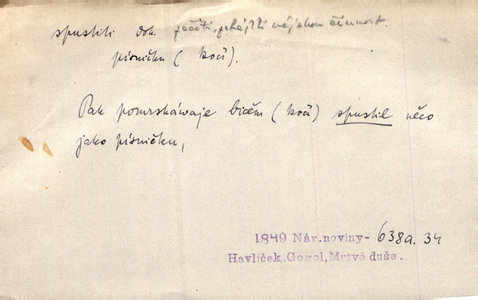 spustiti dok. začíti, zahájiti nějakou činnost.
písničku (kočí).
Pak pomrskávaje bičem (kočí) spustil něco
jako písničku,
1849 Nár.noviny- 638a.34
Havlíček.Gogol,Mrtvé duše.